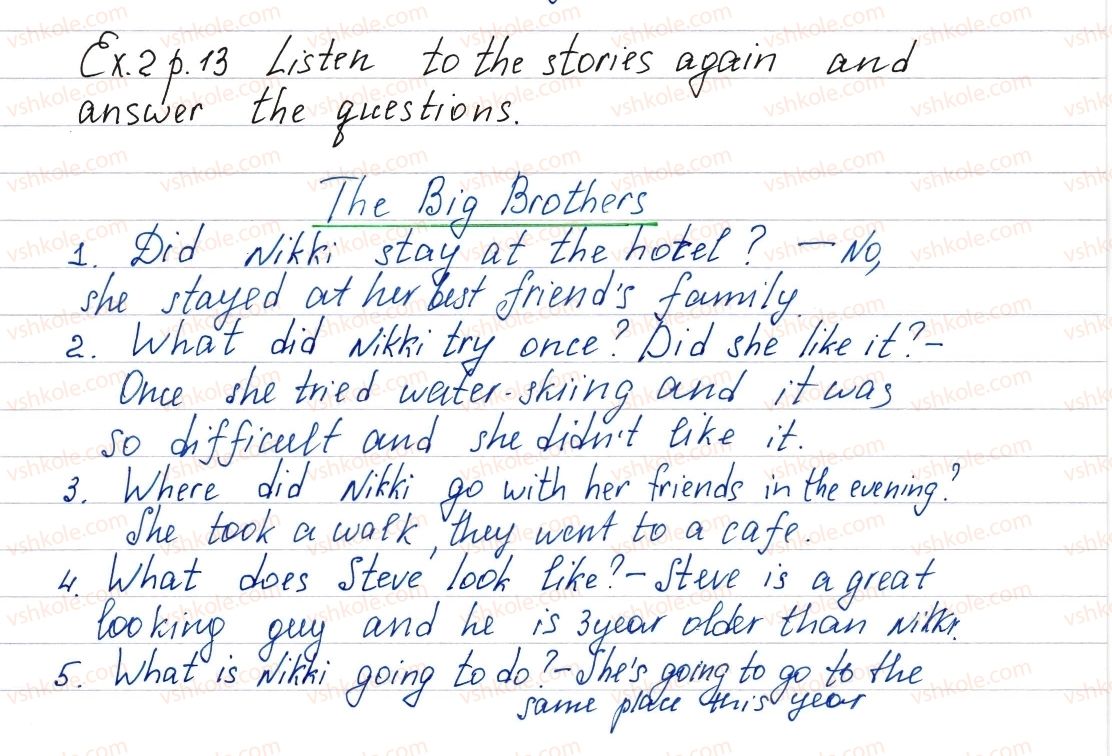 Ex.2 p.13 Listen to the stories again and
answer the questions.
The Big Brothers
1. Did Nikki stay at the hotel? – No,
she stayed at her best friend's family.
2. What did Nikki try once? Did she like it? –
Once she tried water-skiing and it was
so difficult and she didn't like it.
3. Where did Nikki go with her friends in the evening?
She took a walk, they went to a cafe.
4. What does Steve look like? – Steve is a great
looking guy and he is 3 year older than Nikki.
5. What is Nikki going to do? – She's going to go to the
same place this year